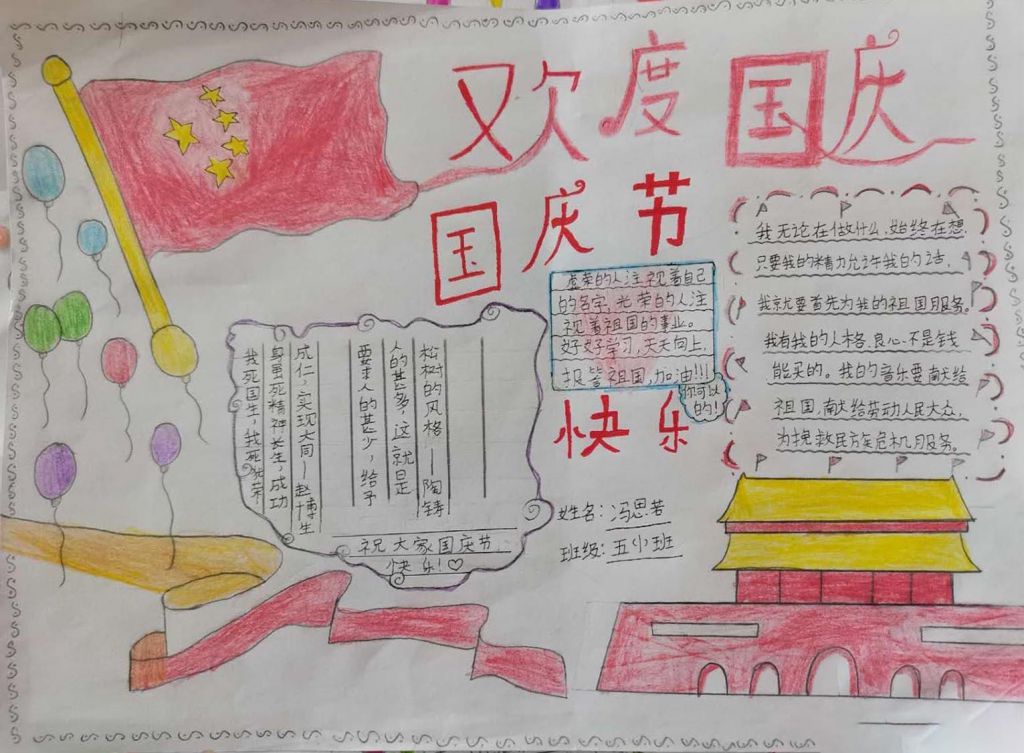 欢度国庆
国庆节
快乐
虚荣的人注视着自己
的名字,光荣的人注
视着祖国的事业。
好好学习,天天向上,
报答祖国,加油!!!
你可以
的!
我无论在做什么,始终在想,
只要我的精力允许我的话,
我就要首先为我的祖国服务。
我有我的人格、良心、不是钱
能买的。我的音乐要献给
祖国,献给劳动人民大众,
为挽救民族危机服务。
松树的风格——陶铸
人的甚多,这就是
要求人的甚少,给予
成仁,实现大同——赵博生
身虽死精神长生,成功
我死国生,我死犹荣,
祝大家国庆节
快乐!♡
姓名:冯思若
班级:五(1)班